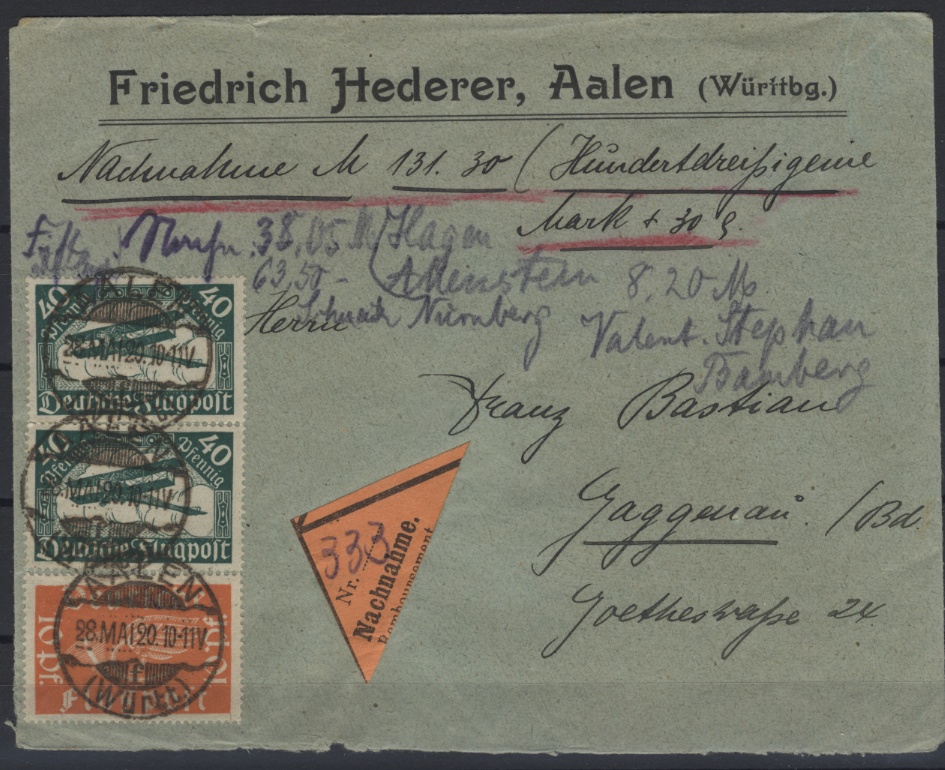 Friedrich Hederer, Aalen (Württbg.)
Nachnahme M 131.30 (Hundertdreißigeine
Mark + 30 ₰.
38,05 M Hagen
63,50 - Allenstein 8.20 M
Schmidt Nürnberg Valent. Stephan
Bamberg
Herrn
Franz Bastian
Gaggenau /Bd.
Goethestraße 24
40 40
Pfennig Pfennig
Deutsche Flugpost
AALEN
28.MAI20.10-11V.
(Württ)
40 40
Pfennig Pfennig
Deutsche Flugpost
AALEN
28.MAI20.10-11V
10 Pf.
AALEN
28.MAI20.10-11V.
f
(Württ)
Nr. 333
Nachnahme.
Remboursement